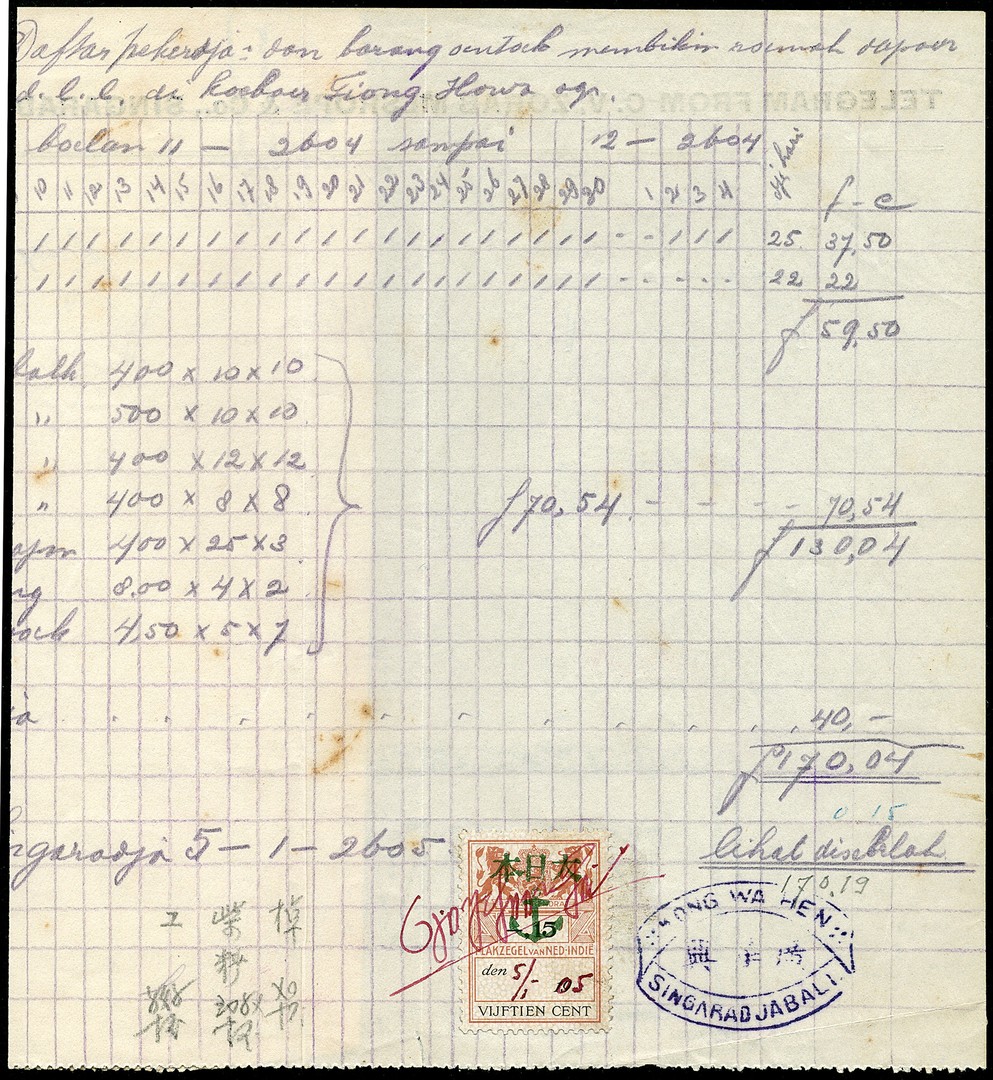 Daftar pekerdja² dan barang oentoek membikin roemah dapoer
d.l.l. di koeboer Tiong Howa oga.
TELEGRAM FROM
boelan 11 — 2604 sampai 12 — 2604 dji hari
10 11 12 13 14 15 16 17 18 19 20 21 22 23 24 25 26 27 28 29 30 1 2 3 4 f - c
25 37,50
22 22
f 59,50
400 x 10 x 10
" 500 x 10 x 10
" 400 x 12 x 12
" 400 x 8 x 8
f 70,54 - - - 70,54
400 x 25 x 3
f 130,04
8.00 x 4 x 2
4,50 x 5 x 7
40,-
f 170,04
0 15
ngaradja 5 — 1 — 2605
lihat disebelah
170.19
本日大
15
PLAKZEGEL VAN NED-INDIË
den 5/1 05
VIJFTIEN CENT
工 柴 掉
料
208x
ONG WA HEN
興 華
SINGARADJA BALI